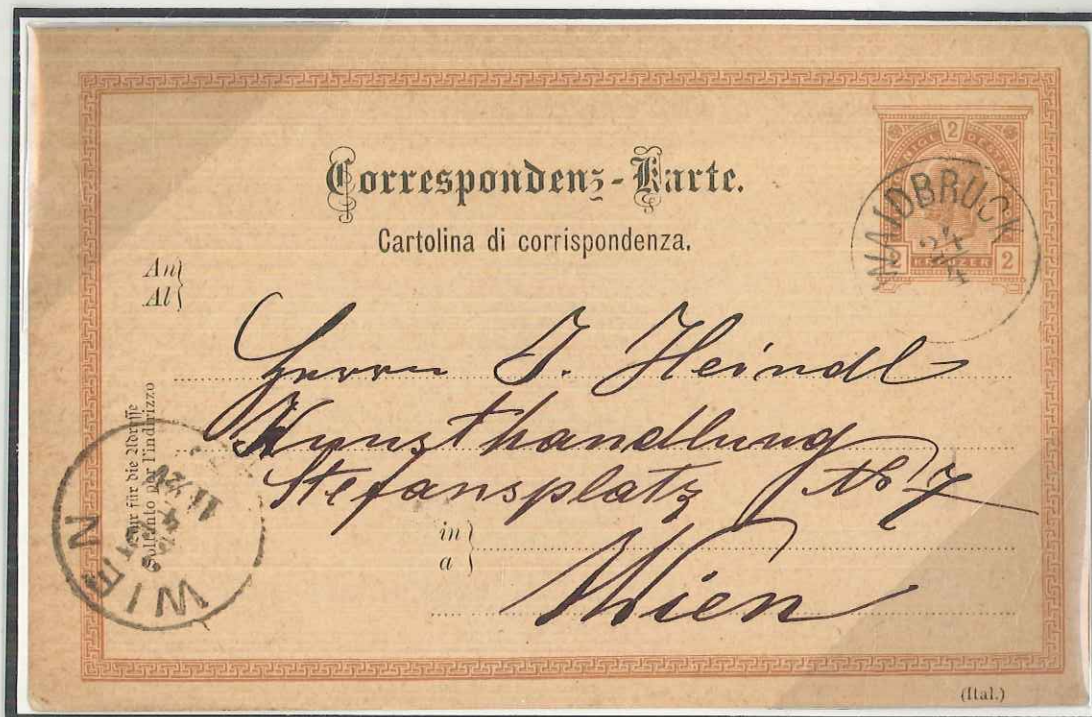 Correspondenz-Karte.
Cartolina di corrispondenza.
2
2 KREUZER 2
WAIDBRUCK
24
4
An
Al
Herrn J. Heindl
Kunsthandlung
Stefansplatz No 7
in
a
Wien
Nur für die Adresse
Soltanto per l'indirizzo
WIEN
(Ital.)